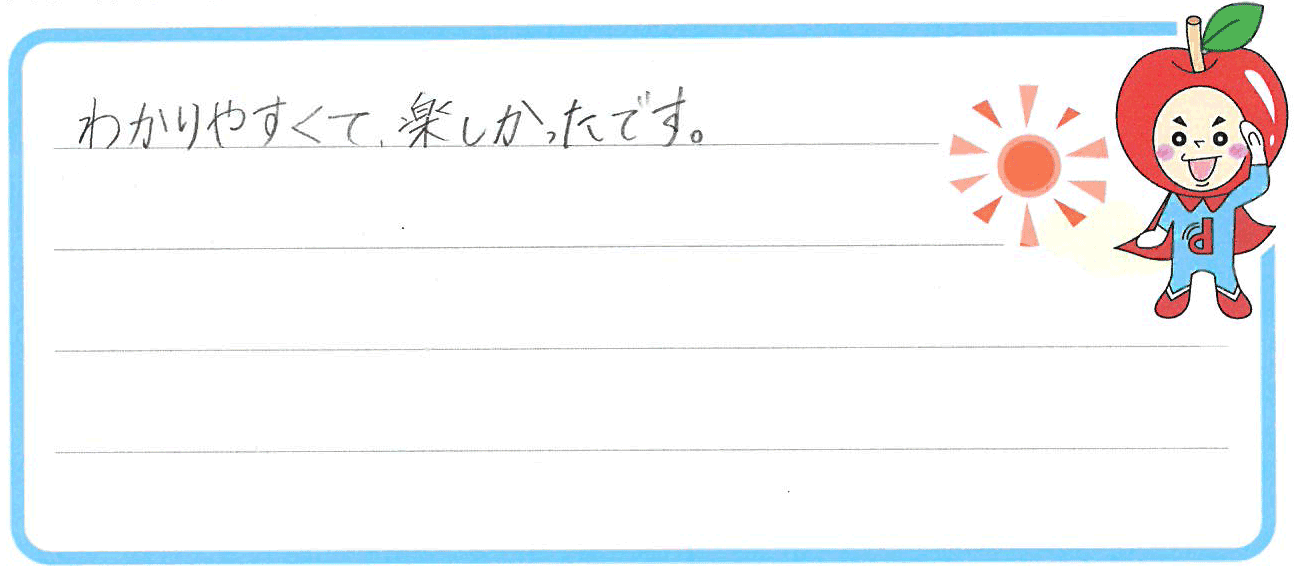 わかりやすくて、楽しかったです。